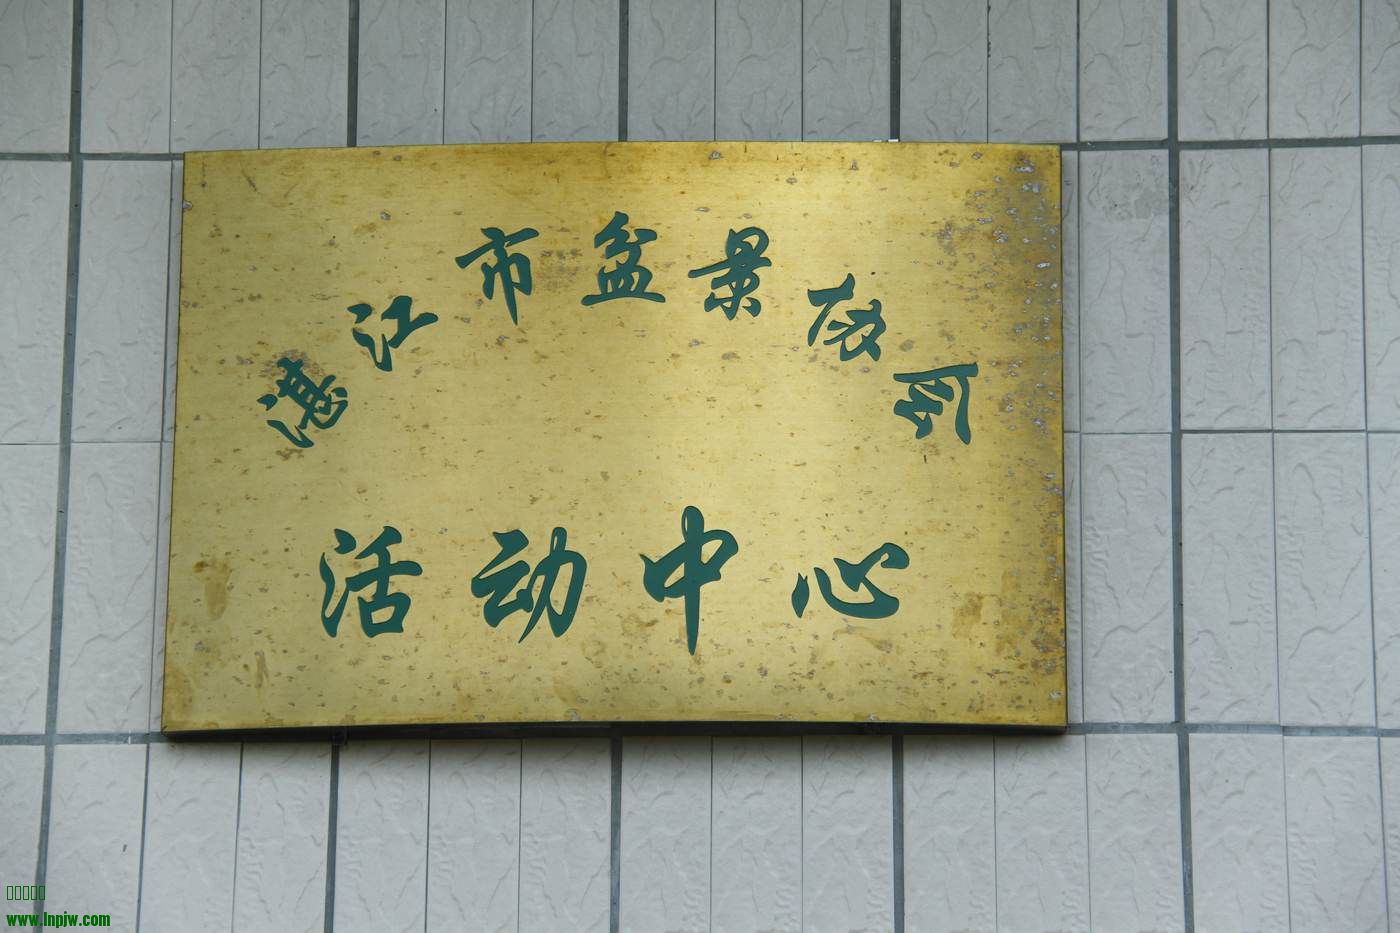 湛江市盆景协会
活动中心
www.lnpjw.com